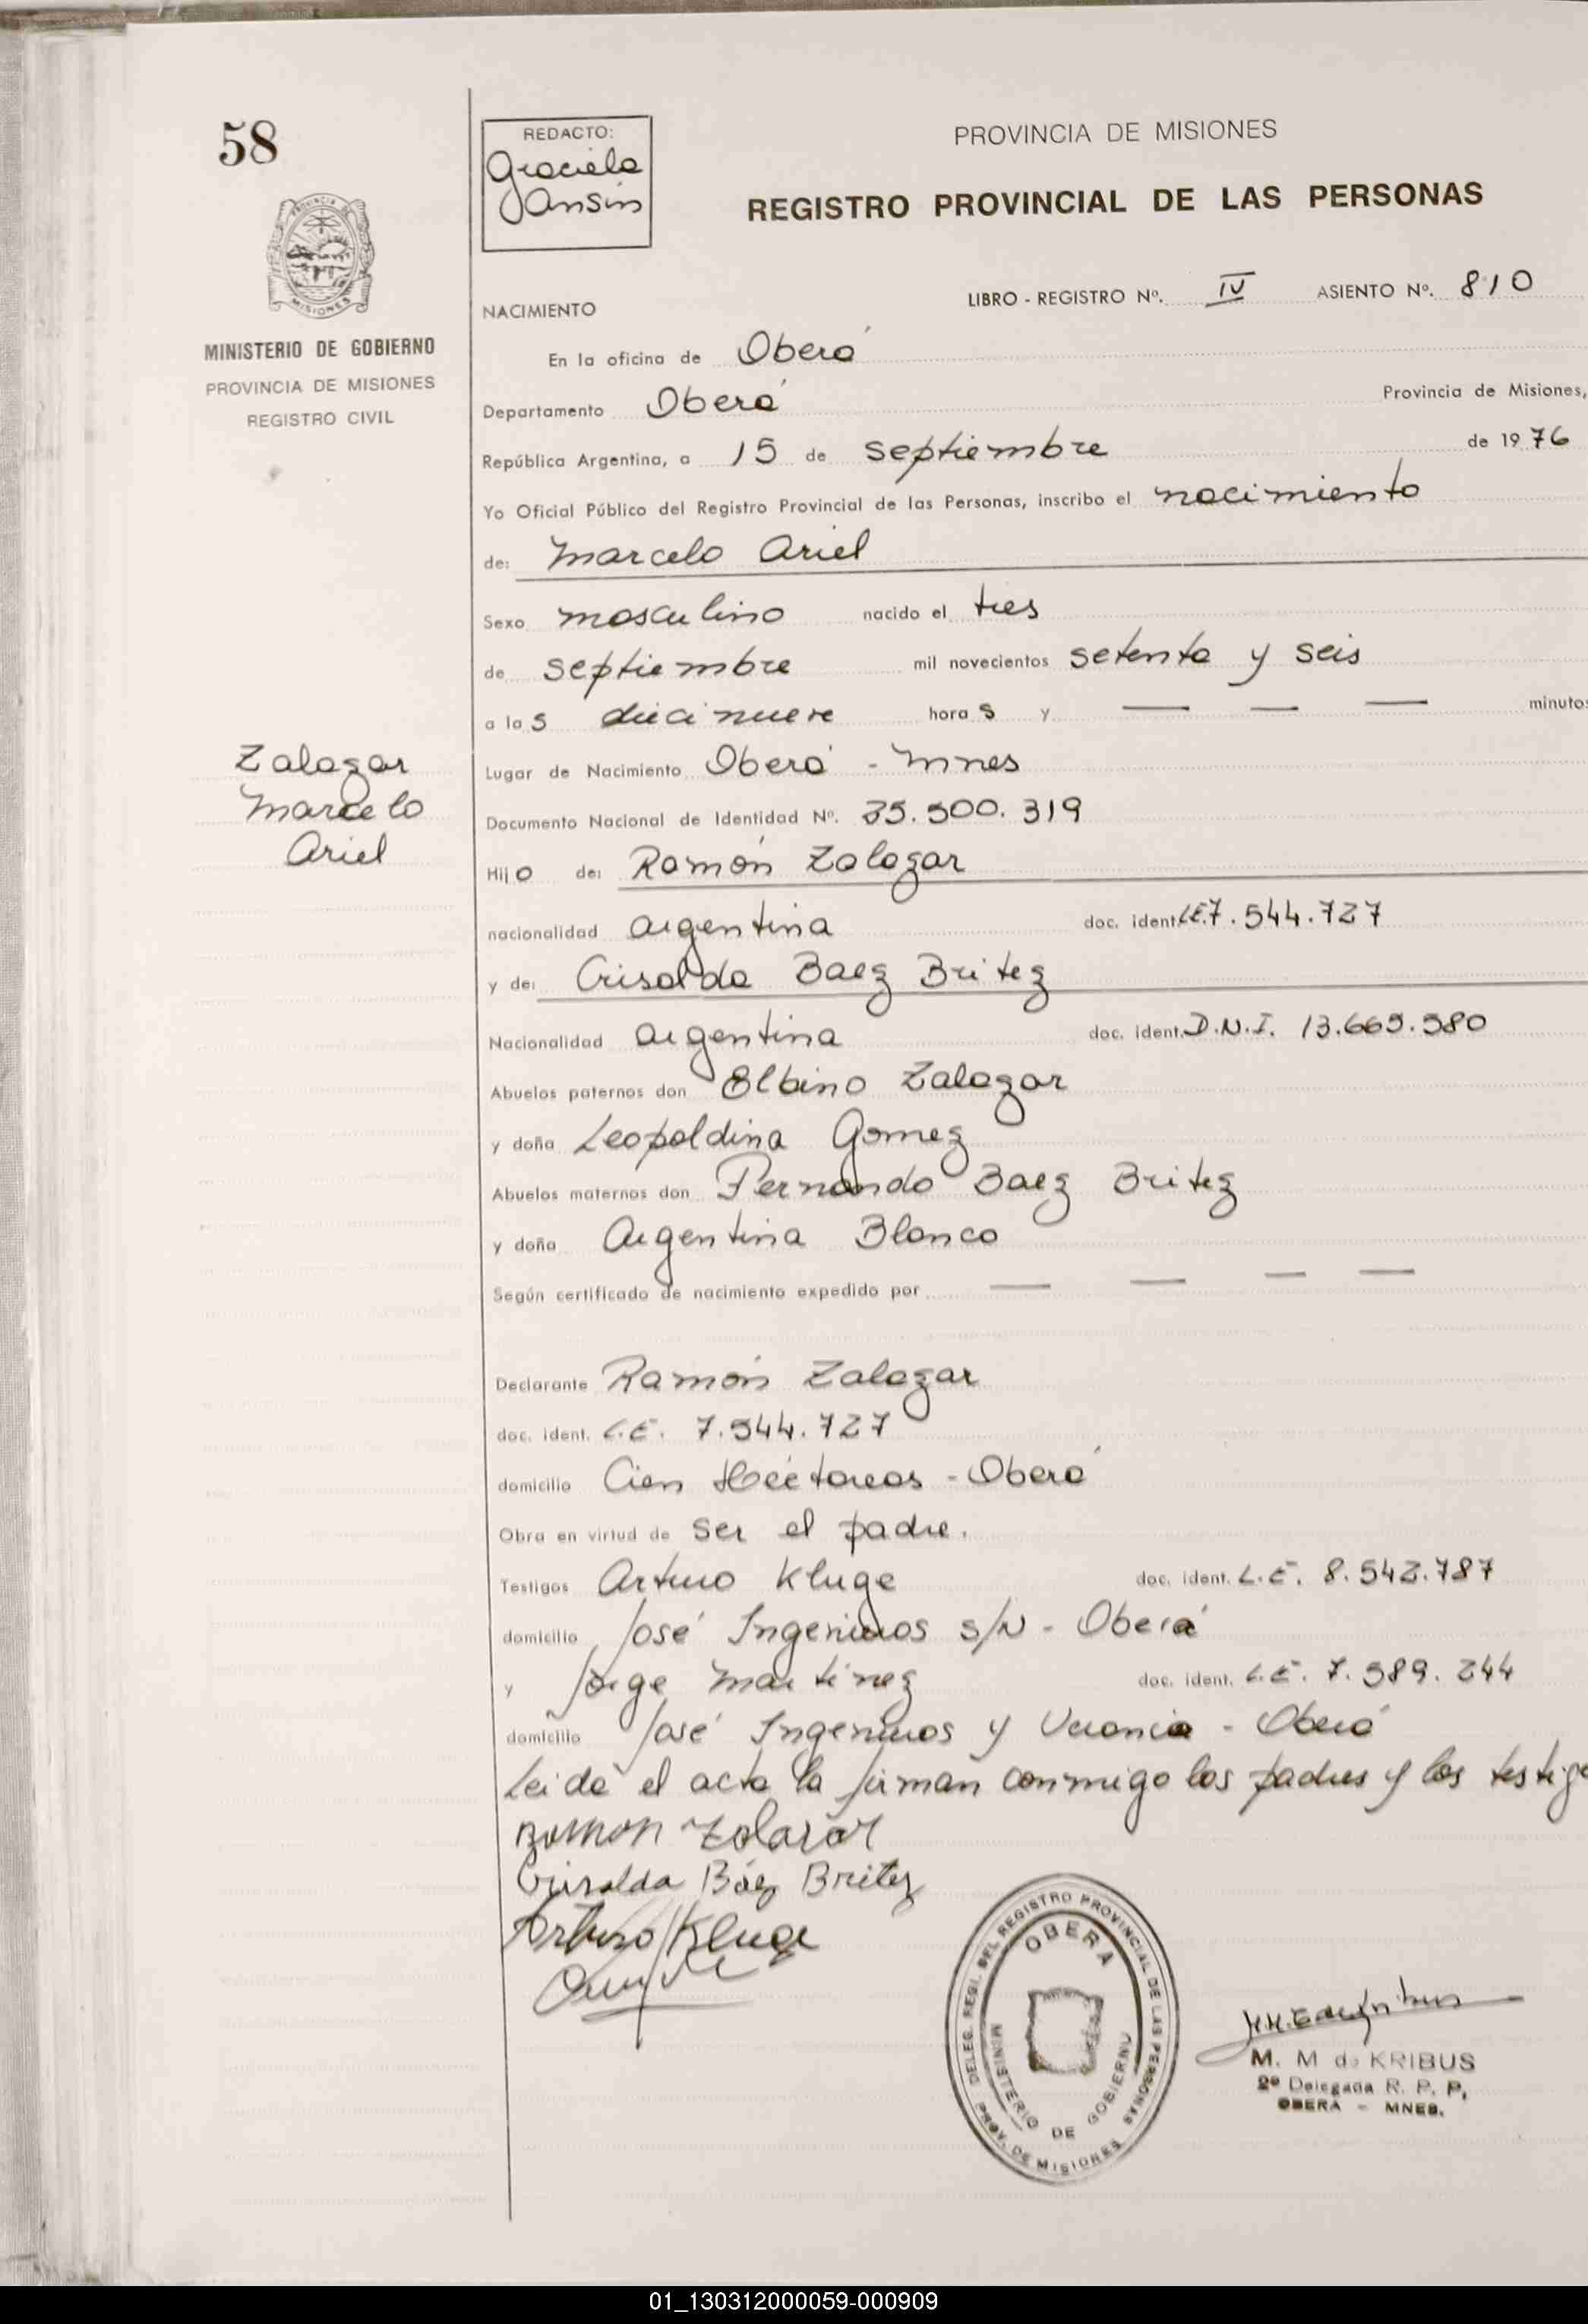 58
REDACTO:
Graciela
Jansin
PROVINCIA DE MISIONES
REGISTRO PROVINCIAL DE LAS PERSONAS
MINISTERIO DE GOBIERNO
PROVINCIA DE MISIONES
REGISTRO CIVIL
LIBRO - REGISTRO Nº. IV ASIENTO Nº. 810
NACIMIENTO
En la oficina de Oberá
Departamento Oberá Provincia de Misiones,
República Argentina, a 15 de septiembre de 1976
Yo Oficial Público del Registro Provincial de las Personas, inscribo el nacimiento
de: Marcelo Ariel
Sexo masculino nacido el tres
de septiembre mil novecientos setenta y seis
a las diecinueve horas y — — — minutos
Zalazar
Marcelo
Ariel
Lugar de Nacimiento Oberá - Mnes
Documento Nacional de Identidad Nº. 25.500.319
Hijo de: Ramón Zalazar
nacionalidad argentina doc. ident. L.E. 7.544.727
y de: Crisalda Baez Britez
Nacionalidad argentina doc. ident. D.N.I. 13.665.580
Abuelos paternos don Elbino Zalazar
y doña Leopoldina Gomez
Abuelos maternos don Fernando Baez Britez
y doña Argentina Blanco
Según certificado de nacimiento expedido por — — — —
Declarante Ramón Zalazar
doc. ident. L.E. 7.544.727
domicilio Cien Héctareas - Oberá
Obra en virtud de ser el padre.
Testigos Arturo Kluge doc. ident. L.E. 8.542.787
domicilio José Ingenieros s/N - Oberá
y Jorge Martinez doc. ident. L.E. 7.589.244
domicilio José Ingenieros y Ucrania - Oberá
Leida el acta la firman conmigo los padres y los testigo
Ramon Zalazar
Crisalda Báez Britez
Arturo Kluge
DELEG. REGI. DEL REGISTRO PROVINCIAL DE LAS PERSONAS
OBERA
MINISTERIO DE GOBIERNO
PROV. DE MISIONES
M. M de KRIBUS
2º Delegada R. P. P.
OBERA - MNES.
01_130312000059-000909